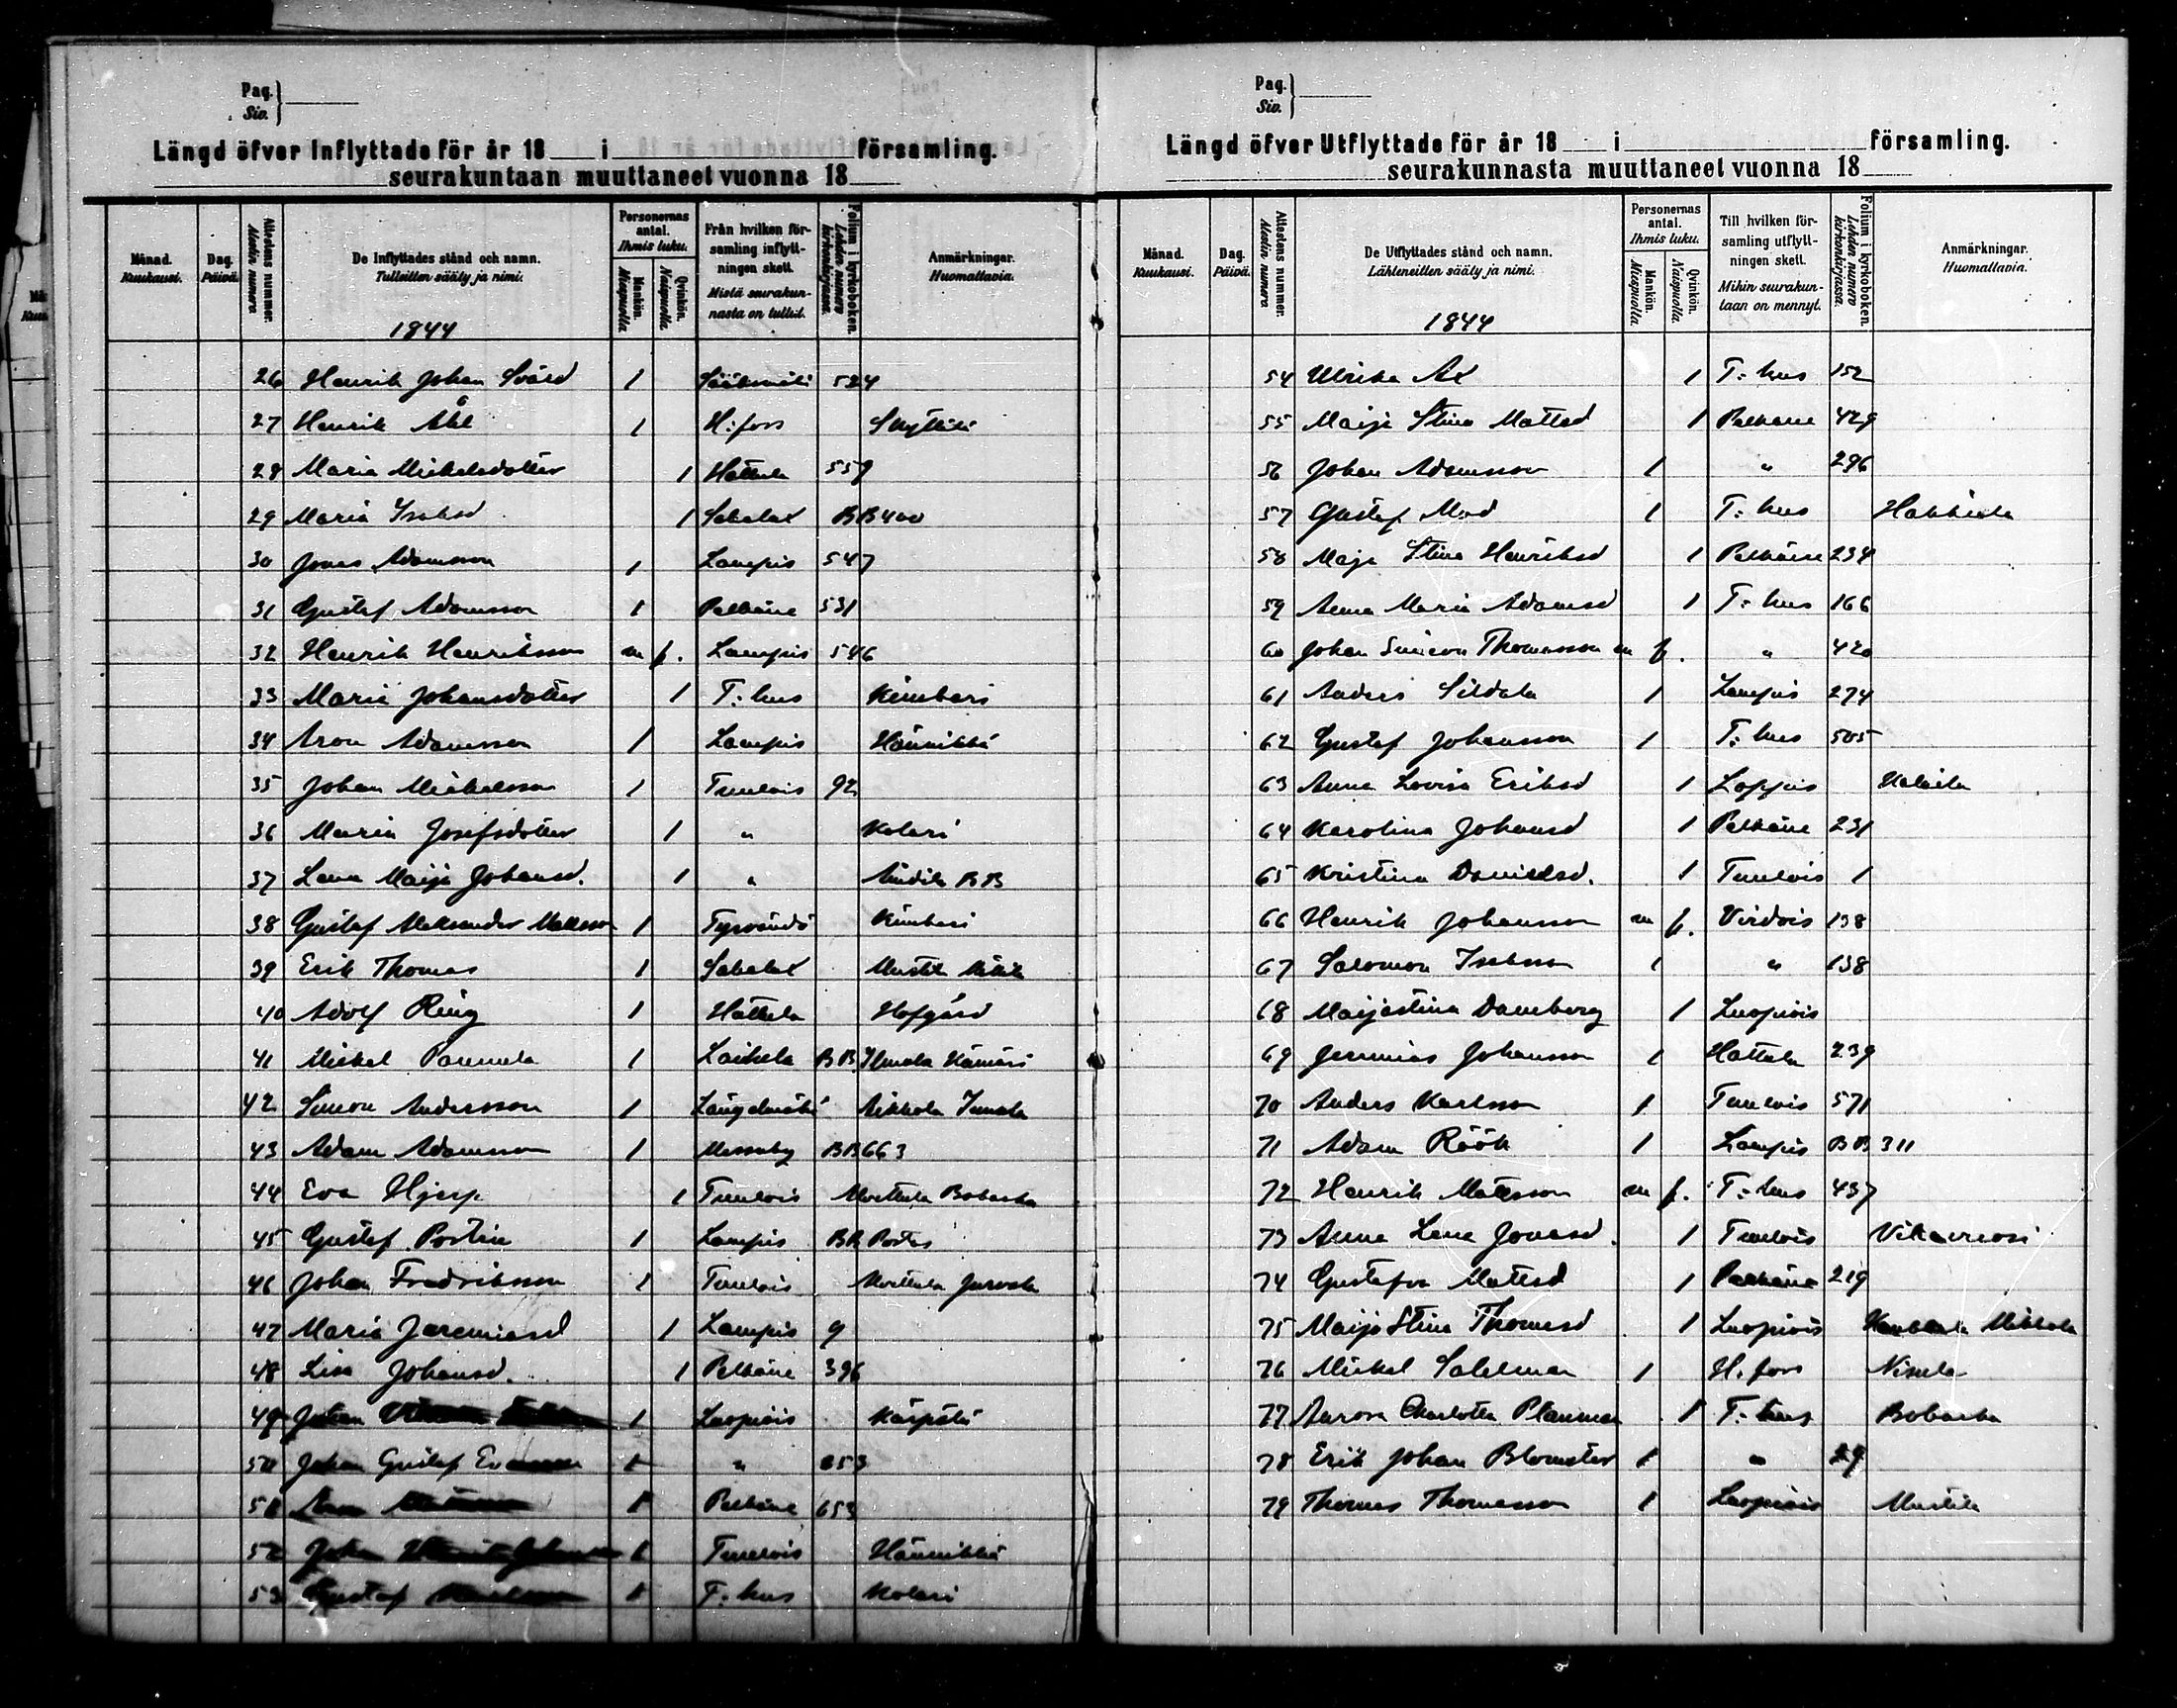 Pag.
Siv.
Längd öfver Inflyttade för år 18 i församling.
seurakuntaan muuttaneet vuonna 18
Månad. Kuukausi.
Dag. Päivä.
Attestens nummer. Akstin numero
De Inflyttades stånd och namn.
Tulleitten sääty ja nimi.
Personernas antal. Ihmis luku.
Mankön. Miespuolia
Qvinkön. Naispuolia
Från hvilken församling inflyttningen skett.
Mistä seurakunnasta on tullut.
Folium i kyrkoboken. Lehden numero kirkonkirjassa.
Anmärkningar. Huomattavia.
1844
26 Henrik Johan Svärd 1 Sääksmäki 524
27 Henrik 1 H:fors Skyttilä
28 Maria Mickelsdotter 1 Hattula 559
29 Maria Isaksd 1 Sahalax BB 400
30 Jonas Adamsson 1 Lampis 547
31 Gustaf Adamsson 1 Pelkäne 531
32 Henrik Henriksson m f. Lampis 546
33 Maria Johansdotter 1 T:hus Kimbari
34 Aron Adamsson 1 Lampis Hännikkä
35 Johan Mickelsson 1 Tuulois 92
36 Maria Josefsdotter 1 " Kolari
37 Lena Maija Johansd. 1 " BB
38 Gustaf Aleksander Matsson 1 Tyrvändö Kimbari
39 Erik Thomas 1 Sahalax
40 Adolf Ring 1 Hattula Hofgård
41 Mickel 1 Laihela BB
42 Simon Andersson 1 Längelmäki
43 Adam Adamsson 1 Messuby BB 663
44 Eva Hjerp 1 Tuulois Bobacka
45 Gustaf Portin 1 Lampis BB Portas
46 Johan Fredriksson 1 Tuulois
47 Maria Jeremiasd 1 Lampis 9
48 Lisa Johansd. 1 Pelkäne 396
49 Johan 1 Luopiois Kärpälä
50 Johan Gustaf 1 " 653
51 1 Pelkäne 653
52 Johan 1 Tuulois Hännikkä
53 Gustaf 1 T:hus Kolari
Pag.
Siv.
Längd öfver Utflyttade för år 18 i församling.
seurakunnasta muuttaneet vuonna 18
Månad. Kuukausi.
Dag. Päivä.
Attestens nummer. Akstin numero
De Utflyttades stånd och namn.
Lähteneitten sääty ja nimi.
Personernas antal. Ihmis luku.
Mankön. Miespuolia
Qvinkön. Naispuolia
Till hvilken församling utflyttningen skett.
Mihin seurakuntaan on mennyt.
Folium i kyrkoboken. Lehden numero kirkonkirjassa.
Anmärkningar. Huomattavia.
1844
54 Ulrika Ax 1 T:hus 152
55 Maija Stina Mattsd 1 Pelkäne 429
56 Johan Adamsson 1 " 296
57 Gustaf Mod 1 T:hus
58 Maja Stina Henriksd 1 Pelkäne 234
59 Anna Maria Adamsd 1 T:hus 166
60 Johan Simeon Thomasson m f. " 420
61 Anders 1 Lampis 274
62 Gustaf Johansson 1 T:hus 505
63 Anna Lovisa Eriksd 1 Loppis
64 Karolina Johansd 1 Pelkäne 231
65 Kristina Danielsd. 1 Tuulois 1
66 Henrik Johansson m f. Virdois 138
67 Salomon Isaksson 1 " 138
68 Maijastina Damberg 1 Luopiois
69 Jeremias Johansson 1 Hattula 239
70 Anders Karlsson 1 Tuulois 571
71 Adam Röök 1 Lampis BB 311
72 Henrik Matsson m f. T:hus 437
73 Anna Lena Jonasd. 1 Tuulois
74 Gustafva Mattsd 1 Pelkäne 219
75 Maija Stina Thomasd 1 Luopiois Mikkola
76 Mickel 1 H.fors Nisula
77 Aurora Charlotta 1 T:hus Bobacka
78 Erik Johan Blomster 1 " 29
79 Thomas Thomasson 1 Luopiois